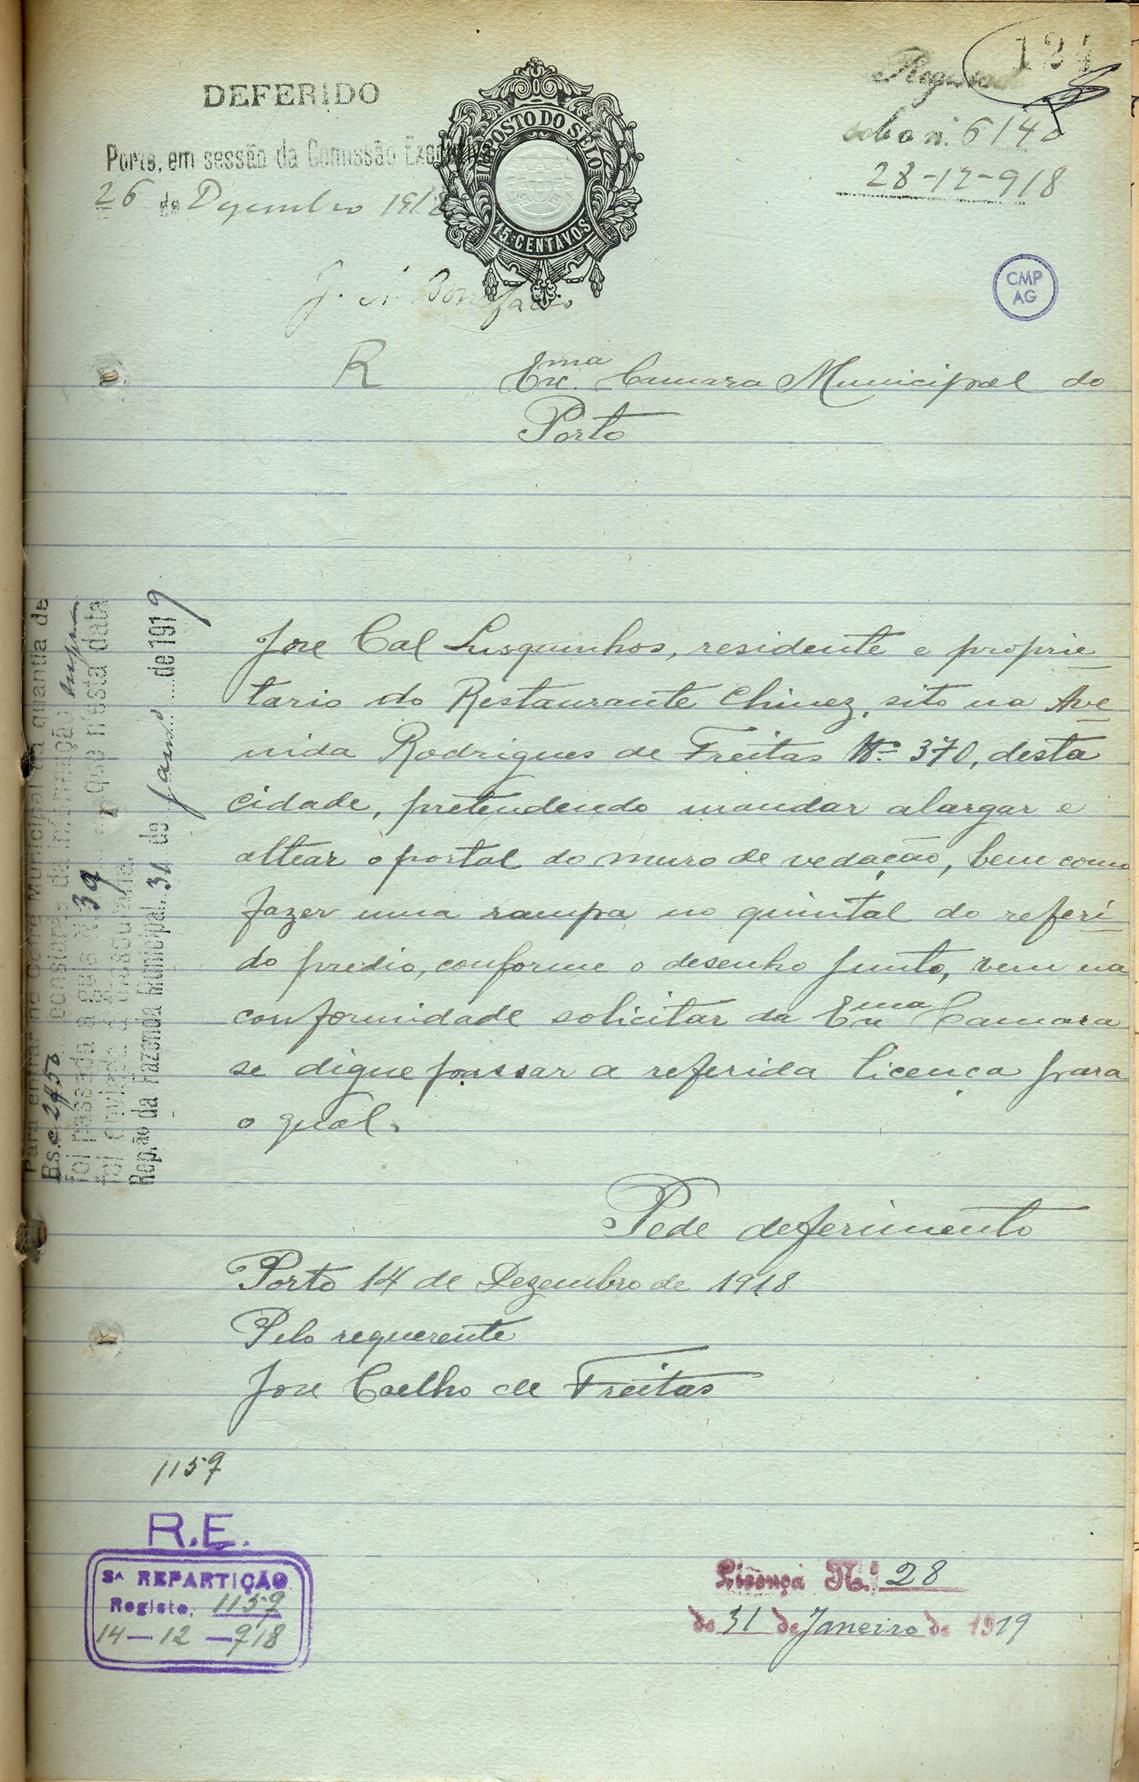 124
DEFERIDO
Porto, em sessão da Comissão Executiva
26 de Dezembro 1918
IMPOSTO DO SELO
15 CENTAVOS
Regist
sob o n.º 6140
28-12-918
CMP
AG
R
Exma. Camara Municipal do
Porto
Jose Cal Lusquinhos, residente e proprie
tario do Restaurante Chinez, sito na Ave
nida Rodrigues de Freitas Nº 370, desta
cidade, pretendendo mandar alargar e
altear o portal do muro de vedação, bem como
fazer uma rampa no quintal do referi
do predio, conforme o desenho junto, vem na
conformidade solicitar da Exma Camara
se digne passar a referida licença para
o qual.
Pede deferimento
Porto 14 de Dezembro de 1918
Pelo requerente
Jose Coelho de Freitas
Para entrar no Cofre Municipal da quantia de
Es. 2$50 constante da informação supra
foi passada a guia N.º 39 que n'esta data
foi enviada á Tesouraria.
Rep.ão da Fazenda Municipal, 31 de Janº de 1919
1157
R.E.
3ª REPARTIÇÃO
Registo, 1157
14-12-918
Licença N.º 28
de 31 de Janeiro de 1919